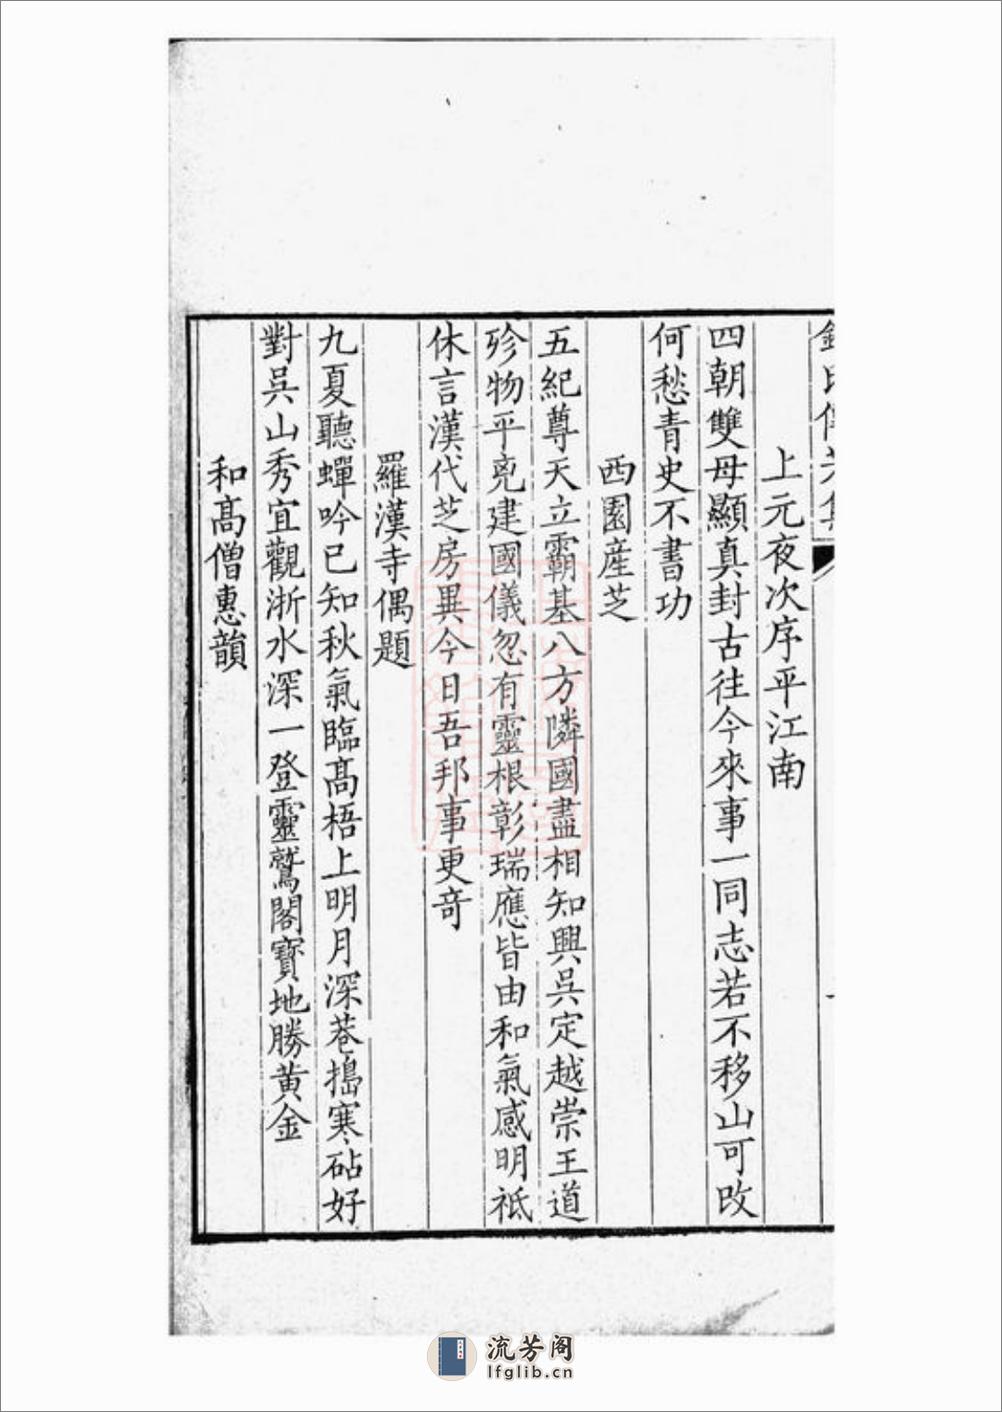 錢氏傳芳集
上元夜次序平江南
四朝雙母顯真封古往今來事一同志若不移山可改
何愁青史不書功
西園産芝
五紀尊天立霸基八方隣國盡相知興吳定越崇王道
殄物平兇建國儀忽有靈根彰瑞應皆由和氣感明祗
休言漢代芝房異今日吾邦事更奇
羅漢寺偶題
九夏聽蟬吟已知秋氣臨髙梧上明月深巷搗寒砧好
對吳山秀宜觀浙水深一登靈鷲閣寳地勝黄金
和髙僧惠韻
流芳阁
lfglib.cn